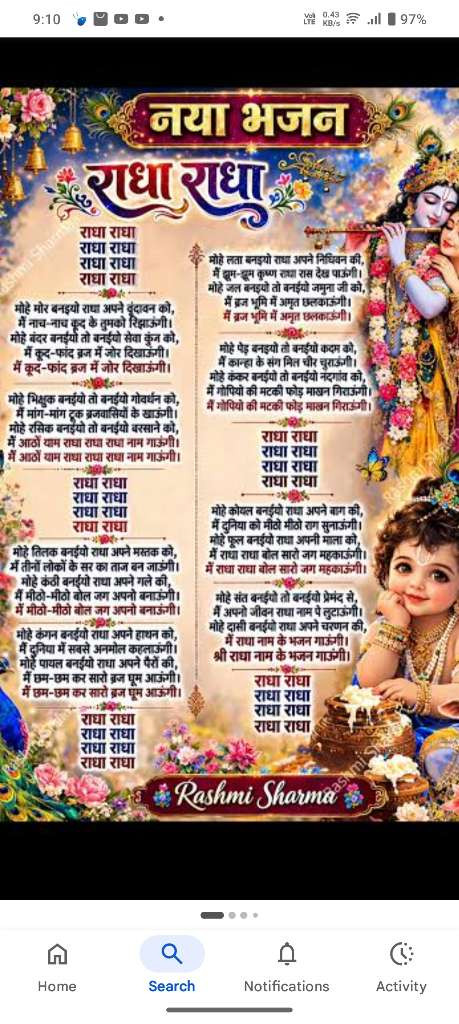 9:10
Vo) LTE
0.43 KB/s
97%
नया भजन
राधा राधा
राधा राधा
राधा राधा
राधा राधा
राधा राधा
मोहे मोर बनइयो राधा अपने वृंदावन को,
मैं नाच-नाच कूद के तुमको रिझाऊंगी।
मोहे बंदर बनईयो तो बनईयो सेवा कुंज को,
मैं कूद-फांद ब्रज में जोर दिखाऊंगी।
मैं कूद-फांद ब्रज में जोर दिखाऊंगी।
मोहे भिक्षुक बनईयो तो बनईयो गोवर्धन को,
मैं मांग-मांग टूक ब्रजवासियों के खाऊंगी।
मोहे रसिक बनईयो तो बनईयो बरसाने को,
मैं आठों याम राधा राधा राधा नाम गाऊंगी।
मैं आठों याम राधा राधा राधा नाम गाऊंगी।
राधा राधा
राधा राधा
राधा राधा
राधा राधा
मोहे तिलक बनईयो राधा अपने मस्तक को,
मैं तीनों लोकों के सर का ताज बन जाऊंगी।
मोहे कंठी बनईयो राधा अपने गले की,
मैं मीठो-मीठो बोल जग अपनो बनाऊंगी।
मैं मीठो-मीठो बोल जग अपनो बनाऊंगी।
मोहे कंगन बनईयो राधा अपने हाथन को,
मैं दुनिया में सबसे अनमोल कहलाऊंगी।
मोहे पायल बनईयो राधा अपने पैरों की,
मैं छम-छम कर सारो ब्रज घूम आऊंगी।
मैं छम-छम कर सारो ब्रज घूम आऊंगी।
राधा राधा
राधा राधा
राधा राधा
राधा राधा
मोहे लता बनइयो राधा अपने निधिवन की,
मैं झूम-झूम कृष्ण राधा रास देख पाऊंगी।
मोहे जल बनइयो तो बनईयो जमुना जी को,
मैं ब्रज भूमि में अमृत छलकाऊंगी।
मैं ब्रज भूमि में अमृत छलकाऊंगी।
मोहे पेड़ बनइयो तो बनईयो कदम को,
मैं कान्हा के संग मिल चीर चुराऊंगी।
मोहे कंकर बनईयो तो बनईयो नंदगांव को,
मैं गोपियो की मटकी फोड़ माखन गिराऊंगी।
मैं गोपियो की मटकी फोड़ माखन गिराऊंगी।
राधा राधा
राधा राधा
राधा राधा
राधा राधा
मोहे कोयल बनईयो राधा अपने बाग की,
मैं दुनिया को मीठो मीठो राग सुनाऊंगी।
मोहे फूल बनईयो राधा अपनी माला को,
मैं राधा राधा बोल सारो जग महकाऊंगी।
मैं राधा राधा बोल सारो जग महकाऊंगी।
मोहे संत बनईयो तो बनईयो प्रेमंद से,
मैं अपनो जीवन राधा नाम पे लुटाऊंगी।
मोहे दासी बनईयो राधा अपने चरणन की,
मैं राधा नाम के भजन गाऊंगी।
श्री राधा नाम के भजन गाऊंगी।
राधा राधा
राधा राधा
राधा राधा
राधा राधा
Rashmi Sharma
Home
Search
Notifications
Activity